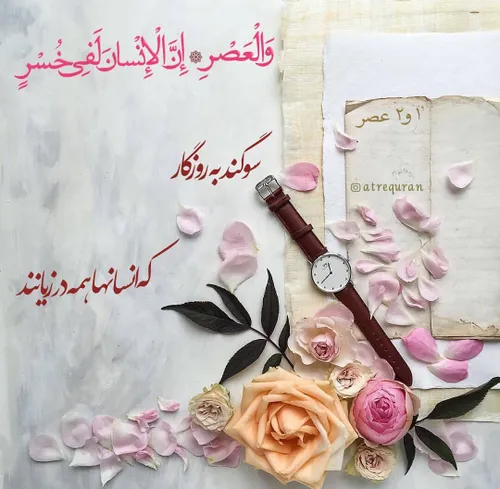 وَالْعَصْرِ ۞ إِنَّ الْإِنْسانَ لَفِی خُسْرٍ
۱ و ۲ عصر
سوگند به روزگار
@atrequran
که انسانها همه در زیانند